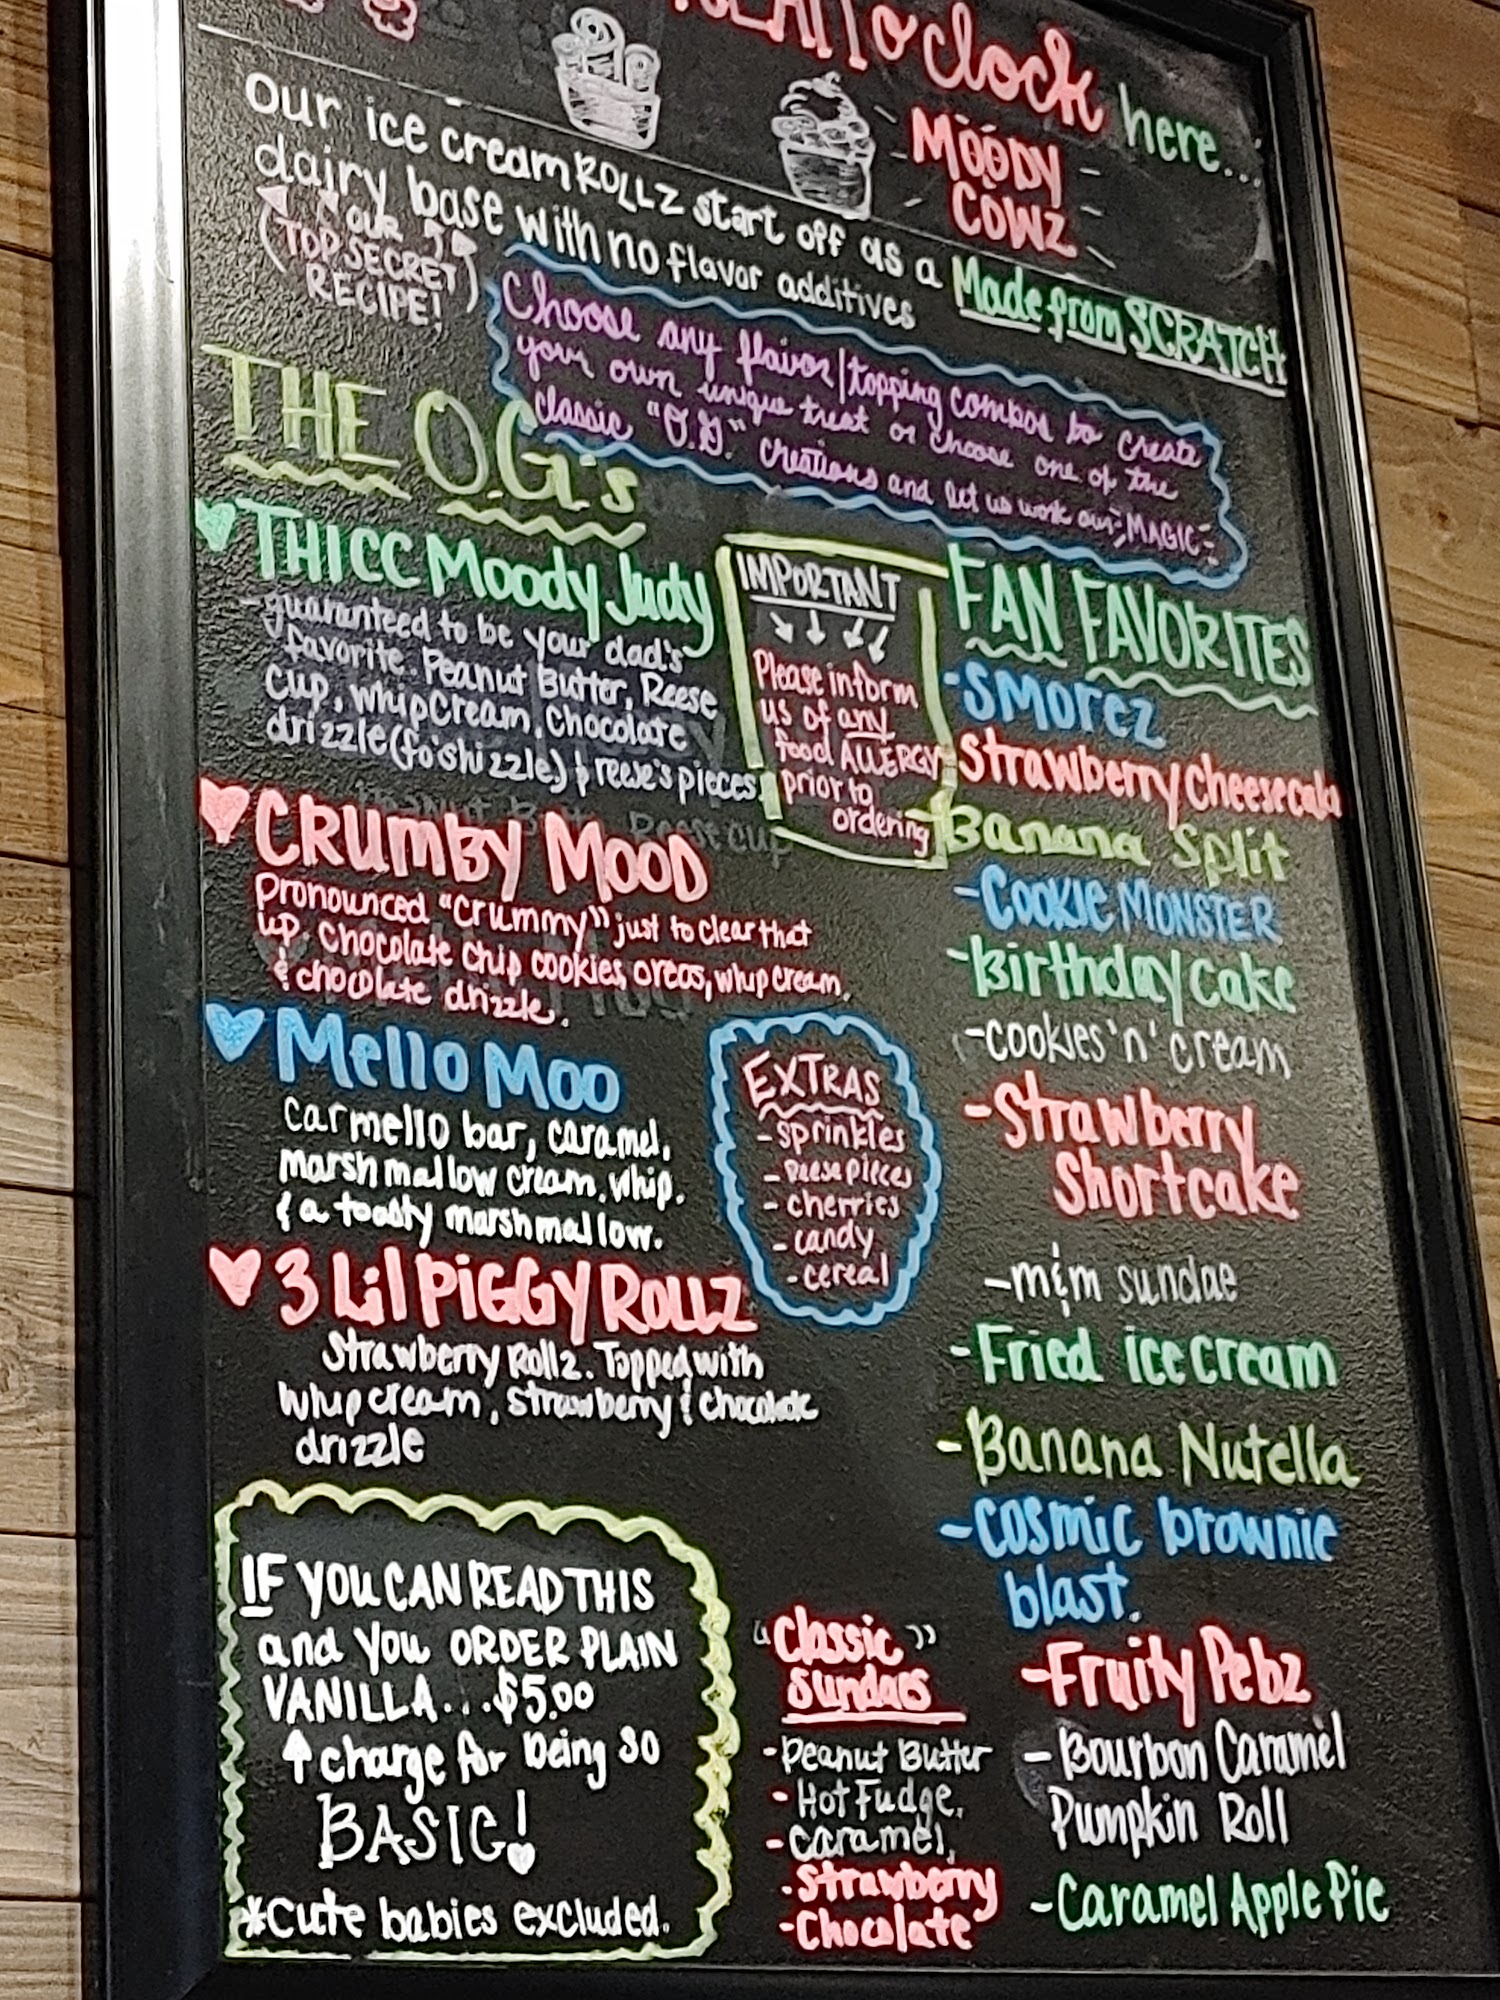 o'clock here...
MOODY
COWZ
our ice cream ROLLZ start off as a Made from SCRATCH
dairy base with no flavor additives
(OUR
TOP SECRET)
RECIPE!
Choose any flavor/topping combos to create
your own unique treat or choose one of the
classic "O.G." creations and let us work our MAGIC
THE O.G.'s
THICC Moody Judy
-guaranteed to be your dad's
favorite. Peanut Butter, Reese
cup, whip cream, chocolate
drizzle (fo'shizzle) & reese's pieces
CRUMBY MOOD
Pronounced "crummy" just to clear that
up. chocolate chip cookies, oreos, whip cream,
& chocolate drizzle.
Mello Moo
carmello bar, caramel,
marshmallow cream, whip,
& a toasty marshmallow.
3 Lil PiGGY ROLLZ
Strawberry Rollz. Topped with
whip cream, strawberry & chocolate
drizzle
IMPORTANT
Please inform
us of any
food ALLERGY
prior to
ordering
EXTRAS
- sprinkles
- reese pieces
- cherries
- candy
- cereal
FAN FAVORITES
-SMOREZ
-Strawberry Cheesecake
-Banana Split
-Cookie MONSTER
-Birthday Cake
-cookies 'n' cream
-Strawberry
Shortcake
-m&m sundae
-Fried ice cream
-Banana Nutella
-cosmic brownie
blast.
-Fruity Pebz
-Bourbon Caramel
Pumpkin Roll
-Caramel Apple Pie
"Classic"
Sundaes
-Peanut Butter
-Hot Fudge,
-caramel,
-Strawberry
-Chocolate
IF YOU CAN READ THIS
and you ORDER PLAIN
VANILLA...$5.00
↑ charge for being so
BASIC!
*cute babies excluded.